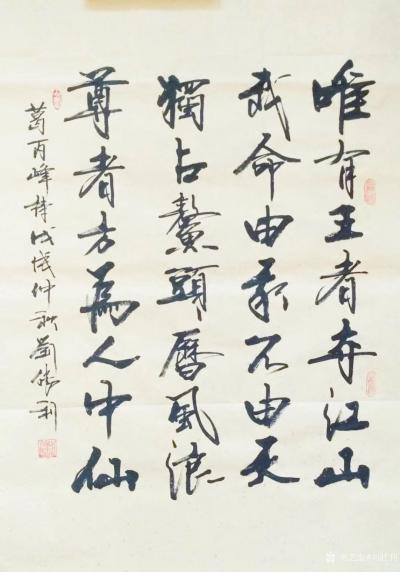 唯有王者奪江山
我命由我不由天
獨占鰲頭曆風浪
尊者方為人中仙
葛百峰詩戊戌仲秋劉勝利